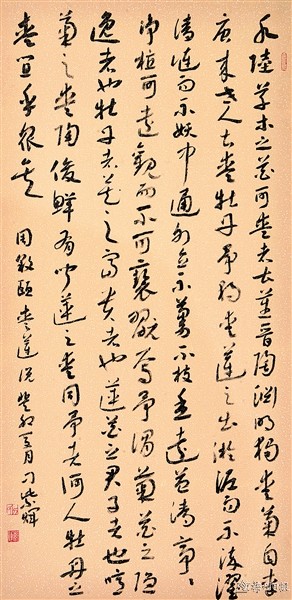 水陸草木之花可愛者甚蕃晋陶淵明獨愛菊自李
唐来世人甚愛牡丹予獨愛蓮之出淤泥而不染濯
清漣而不妖中通外直不蔓不枝香遠益清亭亭
净植可遠觀而不可褻翫焉予謂菊花之隱
逸者也牡丹花之富貴者也蓮花之君子者也噫
菊之愛陶後鮮有聞蓮之愛同予者何人牡丹之
愛宜乎衆矣
周敦頤愛蓮説癸卯夏月刁